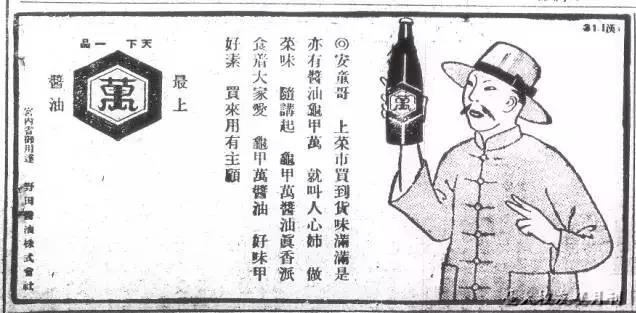 ◎安童哥 上菜市買到貨味滿滿是
亦有醬油龜甲萬 就叫人心姉 做
菜味 隨講起 龜甲萬醬油眞香派
大家愛 龜甲萬醬油 好味甲
好素 買來用有主顧
萬
天下一品
最上
萬
醬油
宮內省御用達 野田醬油株式會社